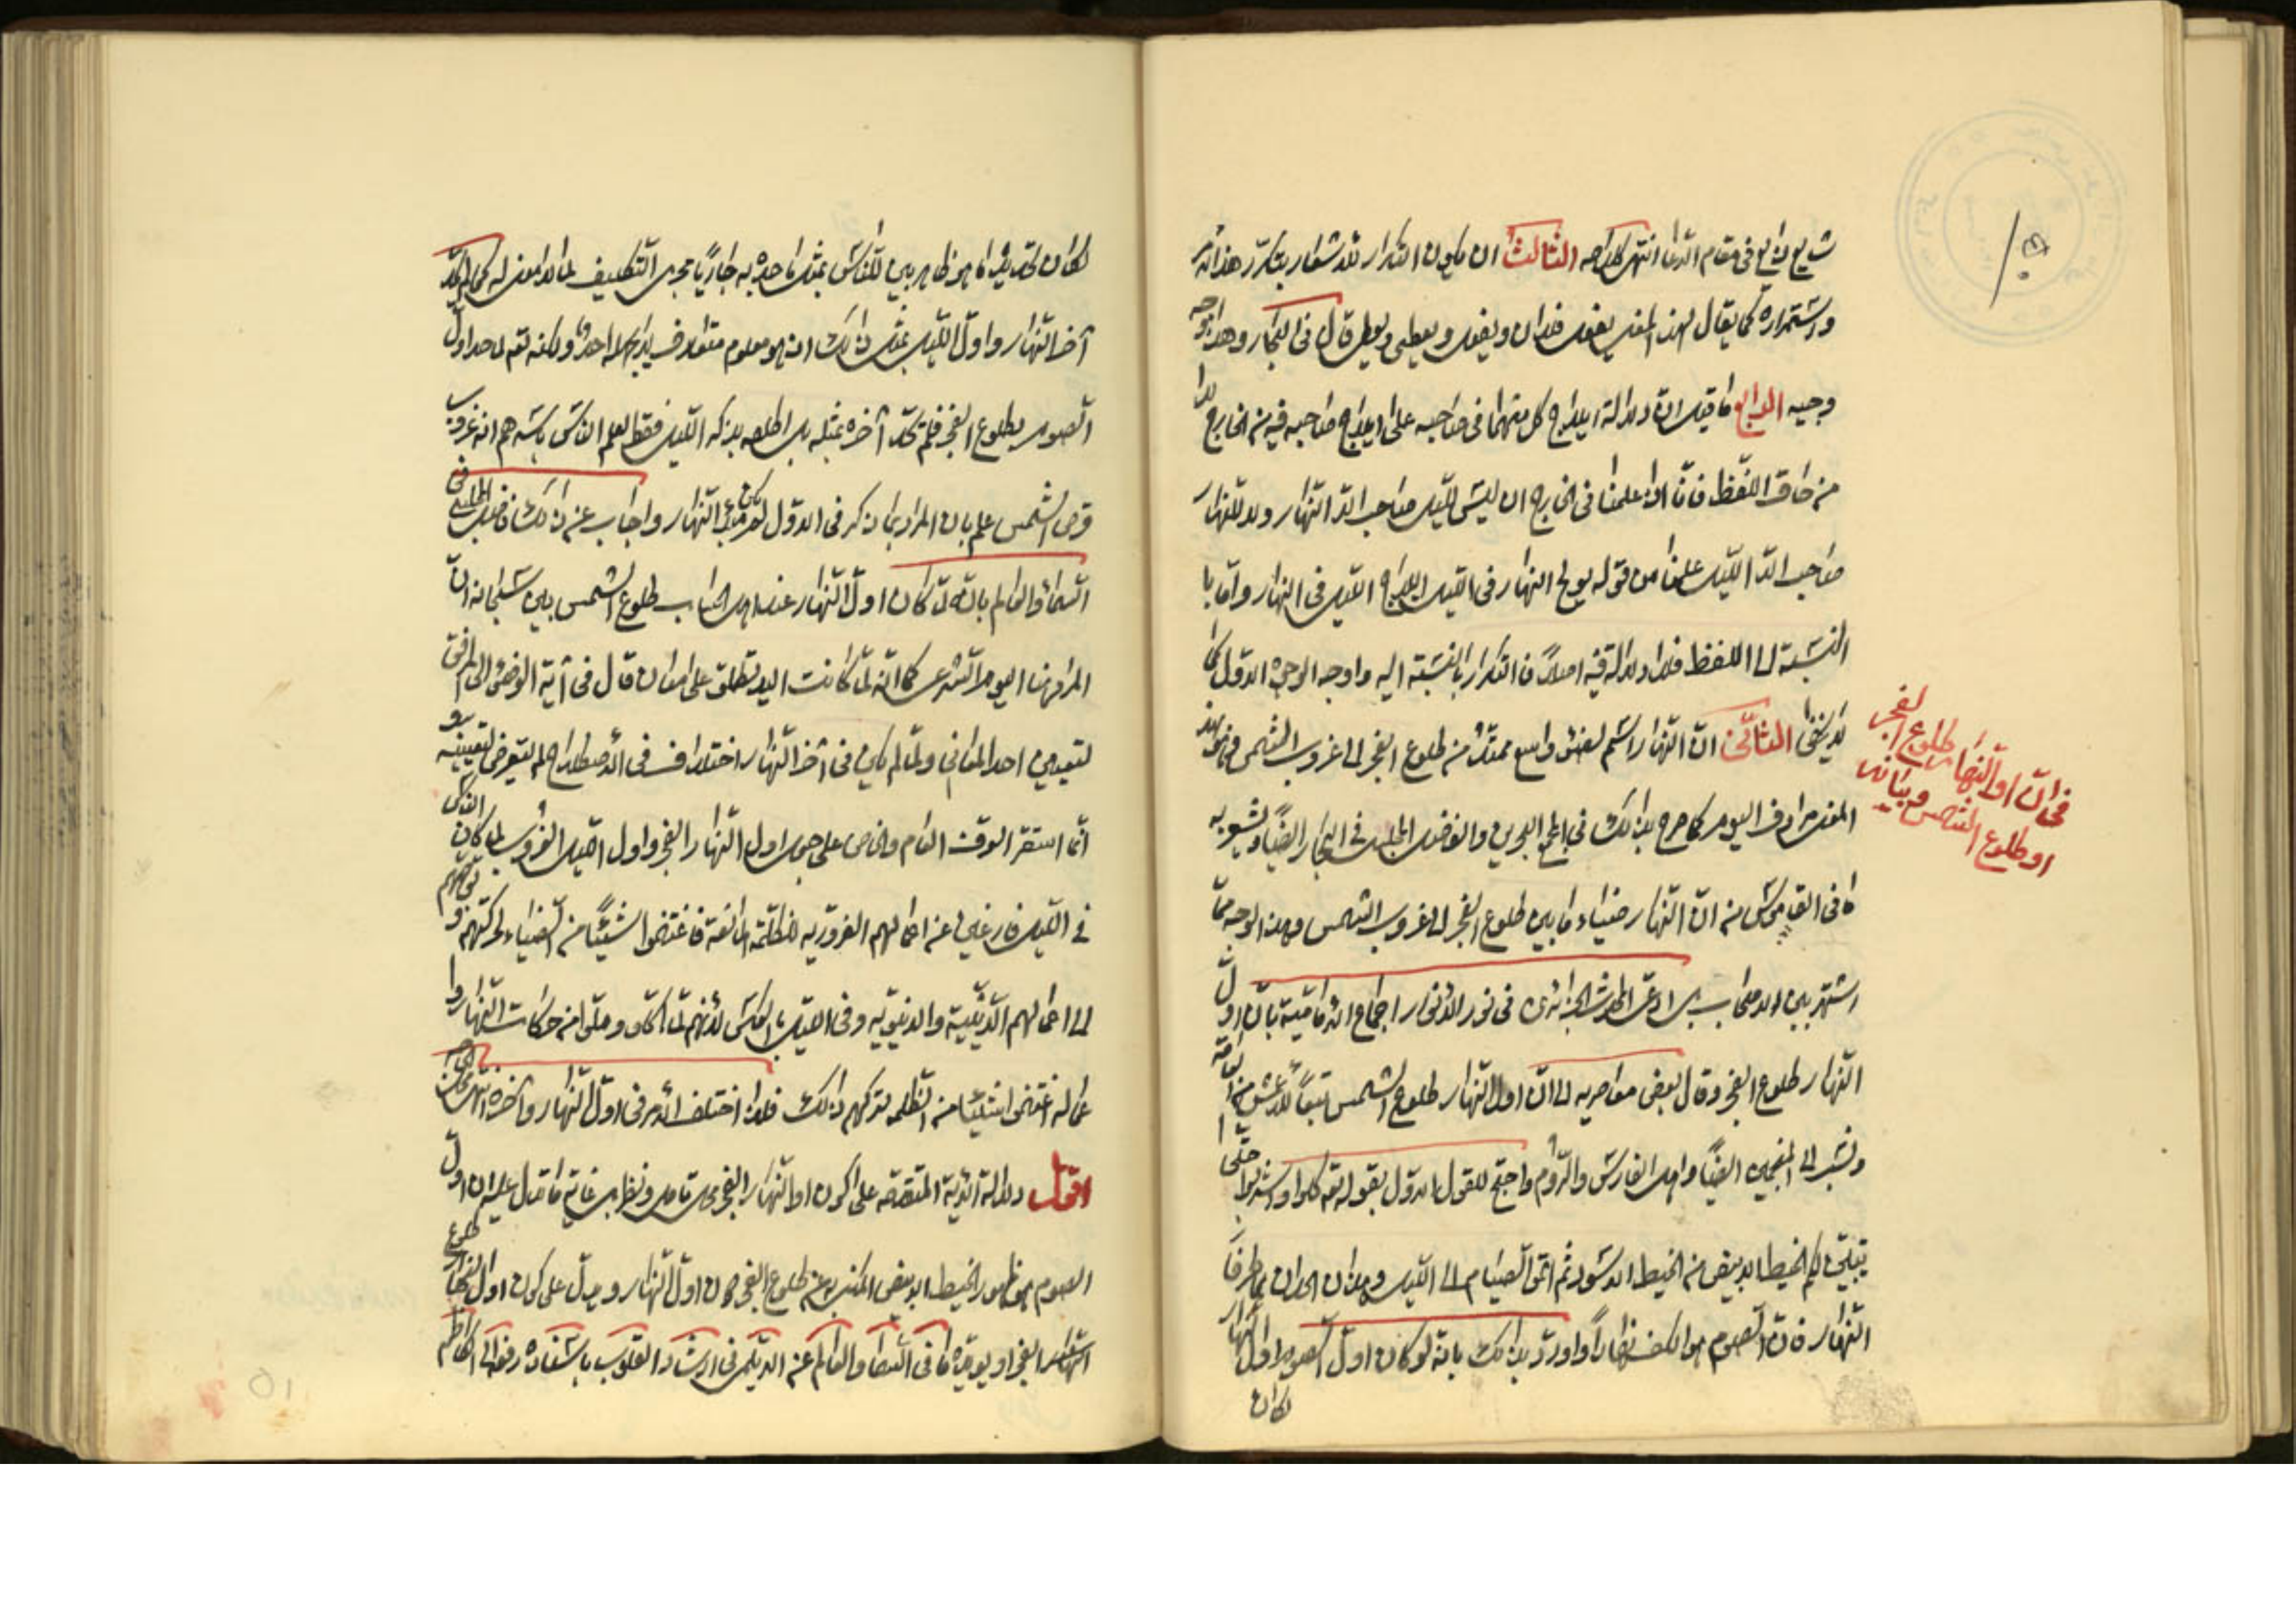 شايع ذايع في مقام الدعا انتهى كلامه الثالث ان يكون التكرار للاشعار بتكرر هذا الامر
واستمراره كما يقال لهذا المعنى يفعل فلان ويفعل ويعطى ويعطى قال في البحار وهذا وجه
وجيه الرابع ما قيل ان دلالة ايلاج كل منهما في صاحبه على ايلاج صاحبه فيه من الخارج لا
من حاق اللفظ فانا اذا علمنا في الخارج ان ليس لليل صاحب الا النهار ولا للنهار
صاحب الا الليل علمنا من قوله يولج النهار في الليل ايلاج الليل في النهار واما با
النسبة الى اللفظ فلا دلالة فيه اصلا فالتكرار بالنسبة اليه واوجه الوجوه الاول كما
لا يخفى الثاني ان النهار اسم لضوء واسع ممتد من طلوع الفجر الى غروب الشمس فهو بهذا
المعنى مرادف اليوم كما صرح بذلك في مجمع البحرين والفاضل المجلسي في البحار ايضا ويشعر به
ما في القاموس من ان النهار ضياء ما بين طلوع الفجر الى غروب الشمس وهذا الوجه مما
اشتهر بين الاصحاب بل ادعى المحدث الجزائري في نور الانوار اجماع الامامية بان اول
النهار طلوع الفجر وقال بعض معاصريه الى ان اول النهار طلوع الشمس تبعا للاعمش من العامة
ونسب الى المنجمين ايضا واهل الفارس والروم واحتج للقول الاول بقوله تعه كلوا واشربوا حتى
يتبين لكم الخيط الابيض من الخيط الاسود ثم اتموا الصيام الى الليل وهذان الحدان هما طرفا
النهار فان الصوم هو الكف نهارا واورد بذلك بانه لو كان اول الصوم اول النهار
لكان
في ان اول النهار طلوع الفجر
او طلوع الشمس وبيانه
لكان تحديد ما هو ظاهر بين للناس بمثل ما حده به جاريا مجرى التكليف لما لا معنى له كما لم يحد
آخر النهار واول الليل بمثل ذلك اذ هو معلوم متعارف لا يجهله احد ولكنه تعه لما حد اول
الصوم بطلوع الفجر فلم يحد آخره بمثله بل اطلقه بذكر الليل فقط لعلم الناس باسرهم انه غروب
قرص الشمس علم بان المراد بما ذكر في الاول لم يكن اول النهار واجاب عن ذلك الفاضل المجلسي في
السماء والعالم بانه لما كان اول النهار عند اهل الحساب طلوع الشمس بين سبحانه ان
المراد هنا اليوم الشرعي كما انه لما كانت اليد تطلق على معان قال في آية الوضوء الى المرافق
لتعيين احد المعاني ولما لم يكن في آخر النهار اختلاف في الاصطلاح لم يتعرض لتعيينه و
انما استقر الوقت العام والخاص على جعل اول النهار الفجر واول الليل الغروب لما كان الناس
في الليل فارغين عن اعمالهم الضرورية للظلمة المانعة فاغتنموا شيئا من الضياء لحركتهم و توجههم
الى اعمالهم الدينية والدنيوية وفي الليل بالعكس لانهم لما كلوا وملوا من حركات النهار وا
عماله اغتنموا شيئا من الظلمة لتركهم ذلك فلذا اختلف الامر في اول النهار وآخره انتهى
اقول دلالة الآية المتقدمة على كون اول النهار الفجر محل تامل ونظر بل غاية ما تدل عليه ان اول
الصوم هو ظهور الخيط الابيض المكنى به عن طلوع الفجر كان اول النهار ويدل على كون اول النهار طلوع
الفجر او يويده ما في السماء والعالم عن الديلمى في ارشاد القلوب باسناده رفعه الى الكاظم